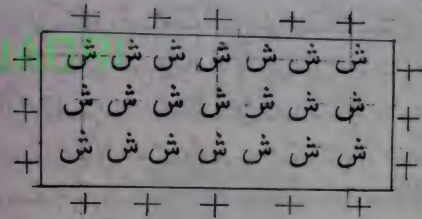 + + + + +
+ ش ش ش ش ش ش ش +
+ ش ش ش ش ش ش ش +
+ ش ش ش ش ش ش ش +
+ + + + +